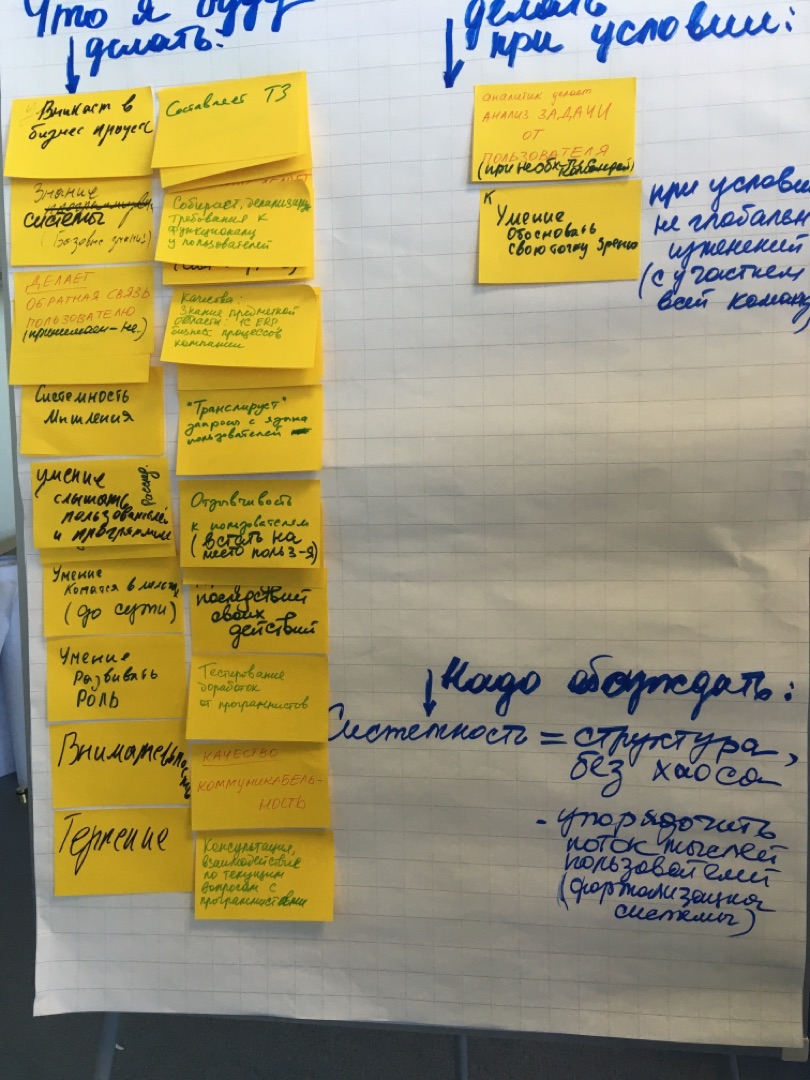 Что я буду
делать:
Вникает в
бизнес процесс
Знание
системы
(базовые знания)
ДЕЛАЕТ
ОБРАТНАЯ СВЯЗЬ
ПОЛЬЗОВАТЕЛЮ
(принимаем-не)
Системность
Мышления
умение
слышать
пользователей
и программи
Умение
(до сути)
Умение
Развивать
РОЛЬ
Терпение
Составляет ТЗ
Собирает,
требования к
функционалу
у пользователей
Качества:
Знание предметной
области: 1С ERP
бизнес процессов
компании
"Транслирует"
запросы с языка
пользователей
Отзывчивость
к пользователям
(встать на
место польз-я)
последствий
своих
действий
Тестирование
доработок
от программистов
КАЧЕСТВО
КОММУНИКАБЕЛЬ-
НОСТЬ
Консультация,
взаимодействие
по текущим
вопросам с
программистами
делать
при условии:
аналитик делает
АНАЛИЗ ЗАДАЧИ
ОТ
ПОЛЬЗОВАТЕЛЯ
(при необх-ти
К
Умение
Обосновать
свою точку зрения
при услови
не глобальн
изменений
(с участием
всей команд
Надо обсуждать:
Системность = структура,
без хаоса
- упорядочить
поток мыслей
пользователей
(формализация
системы)